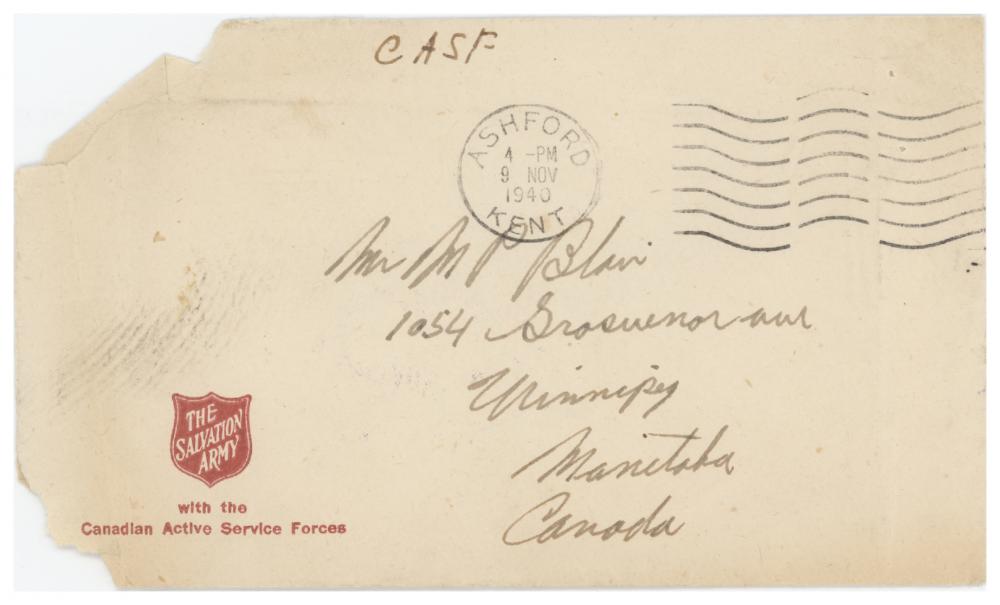 CASF
ASHFORD
4 - PM
9 NOV
1940
KENT
Mr M P Blair
1054 Grosvenor ave
Winnipeg
Manitoba
Canada
THE
SALVATION
ARMY
with the
Canadian Active Service Forces